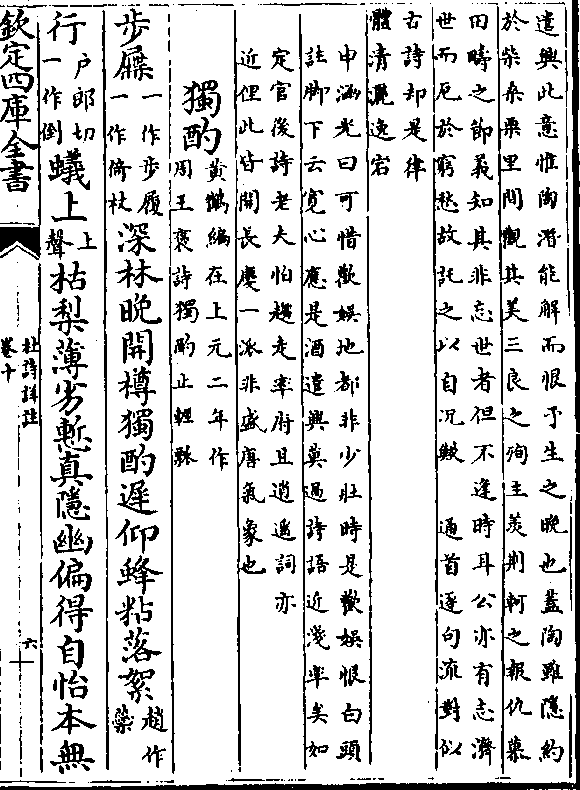 遣興此意惟陶潛能解而恨予生之晚也蓋陶雖隱約
於柴桑栗里間觀其美三良之殉主羨荆軻之報仇慕
田疇之節義知其非忘世者但不逢時耳公亦有志濟
世而厄於窮愁故託之以自況歟　通首逐句流對似
古詩却是律
體清灑逸宕
申涵光曰可惜歡娛地都非少壯時是歡娛恨白頭
註脚下云寛心應是酒遣興莫過詩語近淺率矣如
定官後詩老夫怕趨走率府且逍遙詞亦
近俚此皆開長慶一派非盛唐氣象也
獨酌
黃鶴編在上元二年作
周王褒詩獨酌止輕瓢
步屧一作步履一作倚杖深林晚開樽獨酌遲仰蜂粘落絮趙作蘂
行户郎切一作倒蟻上上聲枯梨薄劣慙真隱幽偏得自怡本無
欽定四庫全書
杜詩詳註
卷十
六